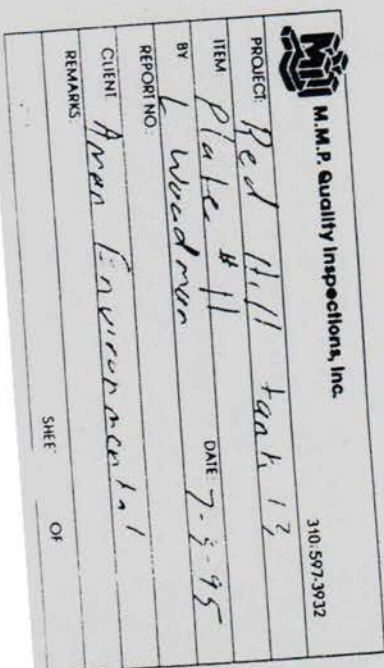 M.M.P. Quality Inspections, Inc.
310.597-3932
PROJECT: Red Hill tank 13
ITEM: Plate # 11
DATE: 7-2-95
BY L Woodmun
REPORT NO.:
CLIENT Aman Environmental
REMARKS:
SHEE OF